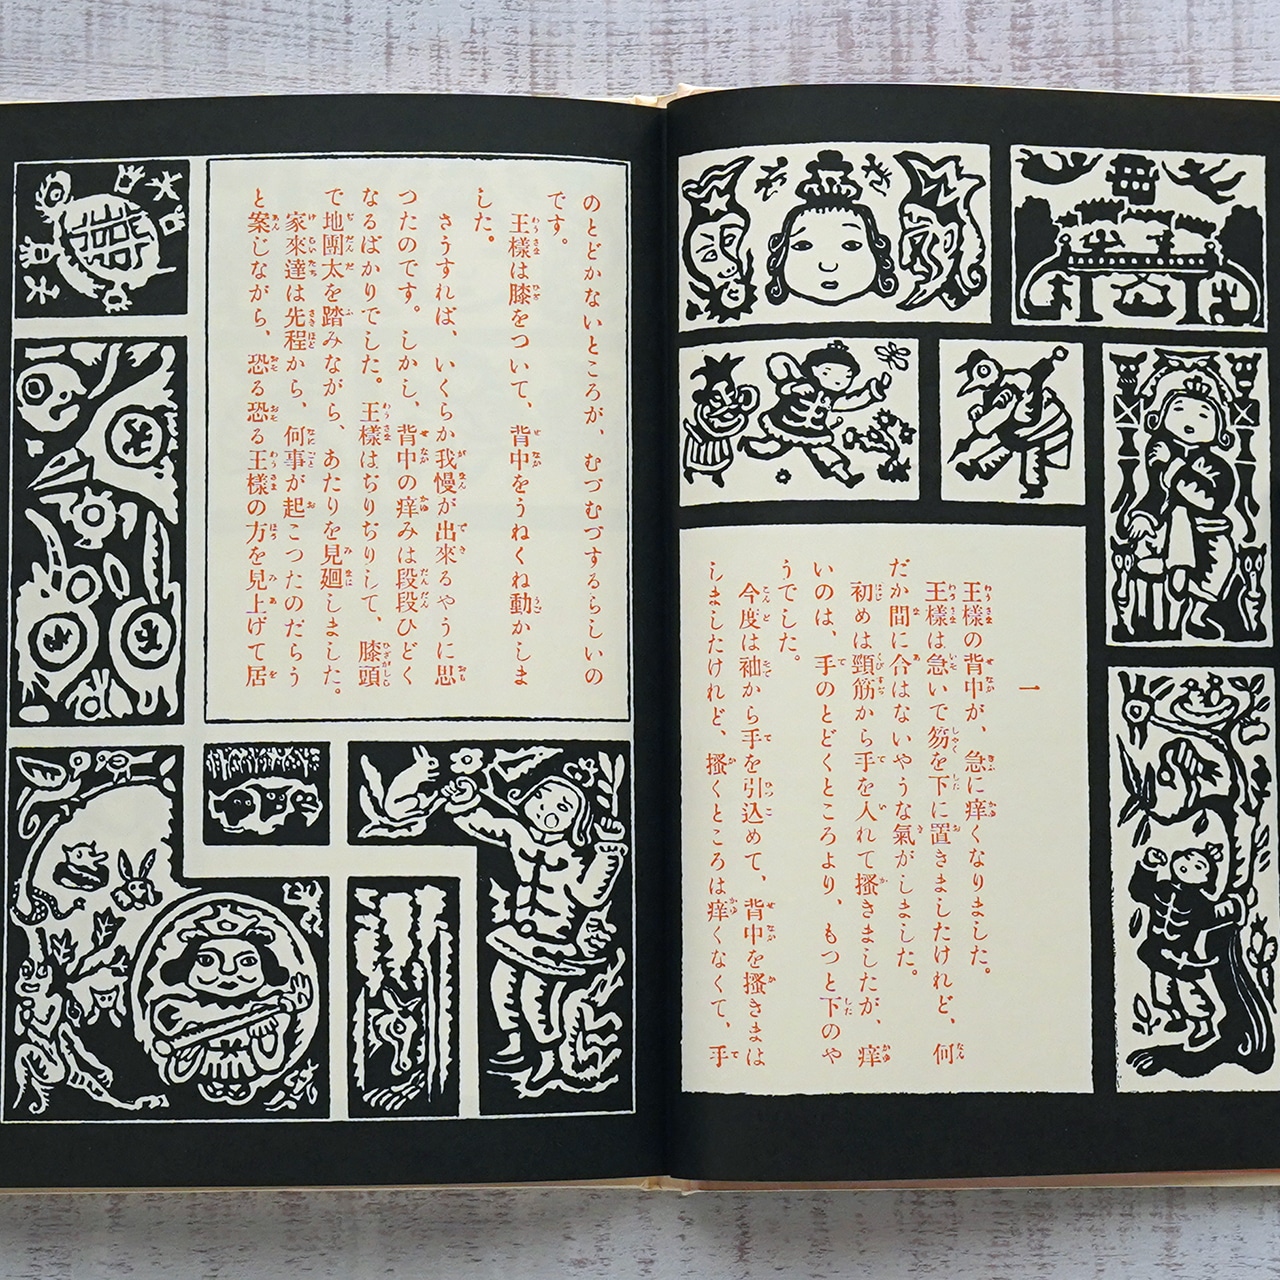 一
王樣の背中が、急に痒くなりました。
王樣は急いで笏を下に置きましたけれど、何
だか間に合はないやうな氣がしました。
初めは頸筋から手を入れて搔きましたが、痒
いのは、手のとどくところより、もつと下のや
うでした。
今度は袖から手を引込めて、背中を搔きまは
しましたけれど、搔くところは痒くなくて、手
のとどかないところが、むづむづするらしいの
です。
王樣は膝をついて、背中をうねくね動かしま
した。
さうすれば、いくらか我慢が出來るやうに思
つたのです。しかし、背中の痒みは段段ひどく
なるばかりでした。王樣はぢりぢりして、膝頭
で地團太を踏みながら、あたりを見廻しました。
家來達は先程から、何事が起こつたのだらう
と案じながら、恐る恐る王樣の方を見上げて居